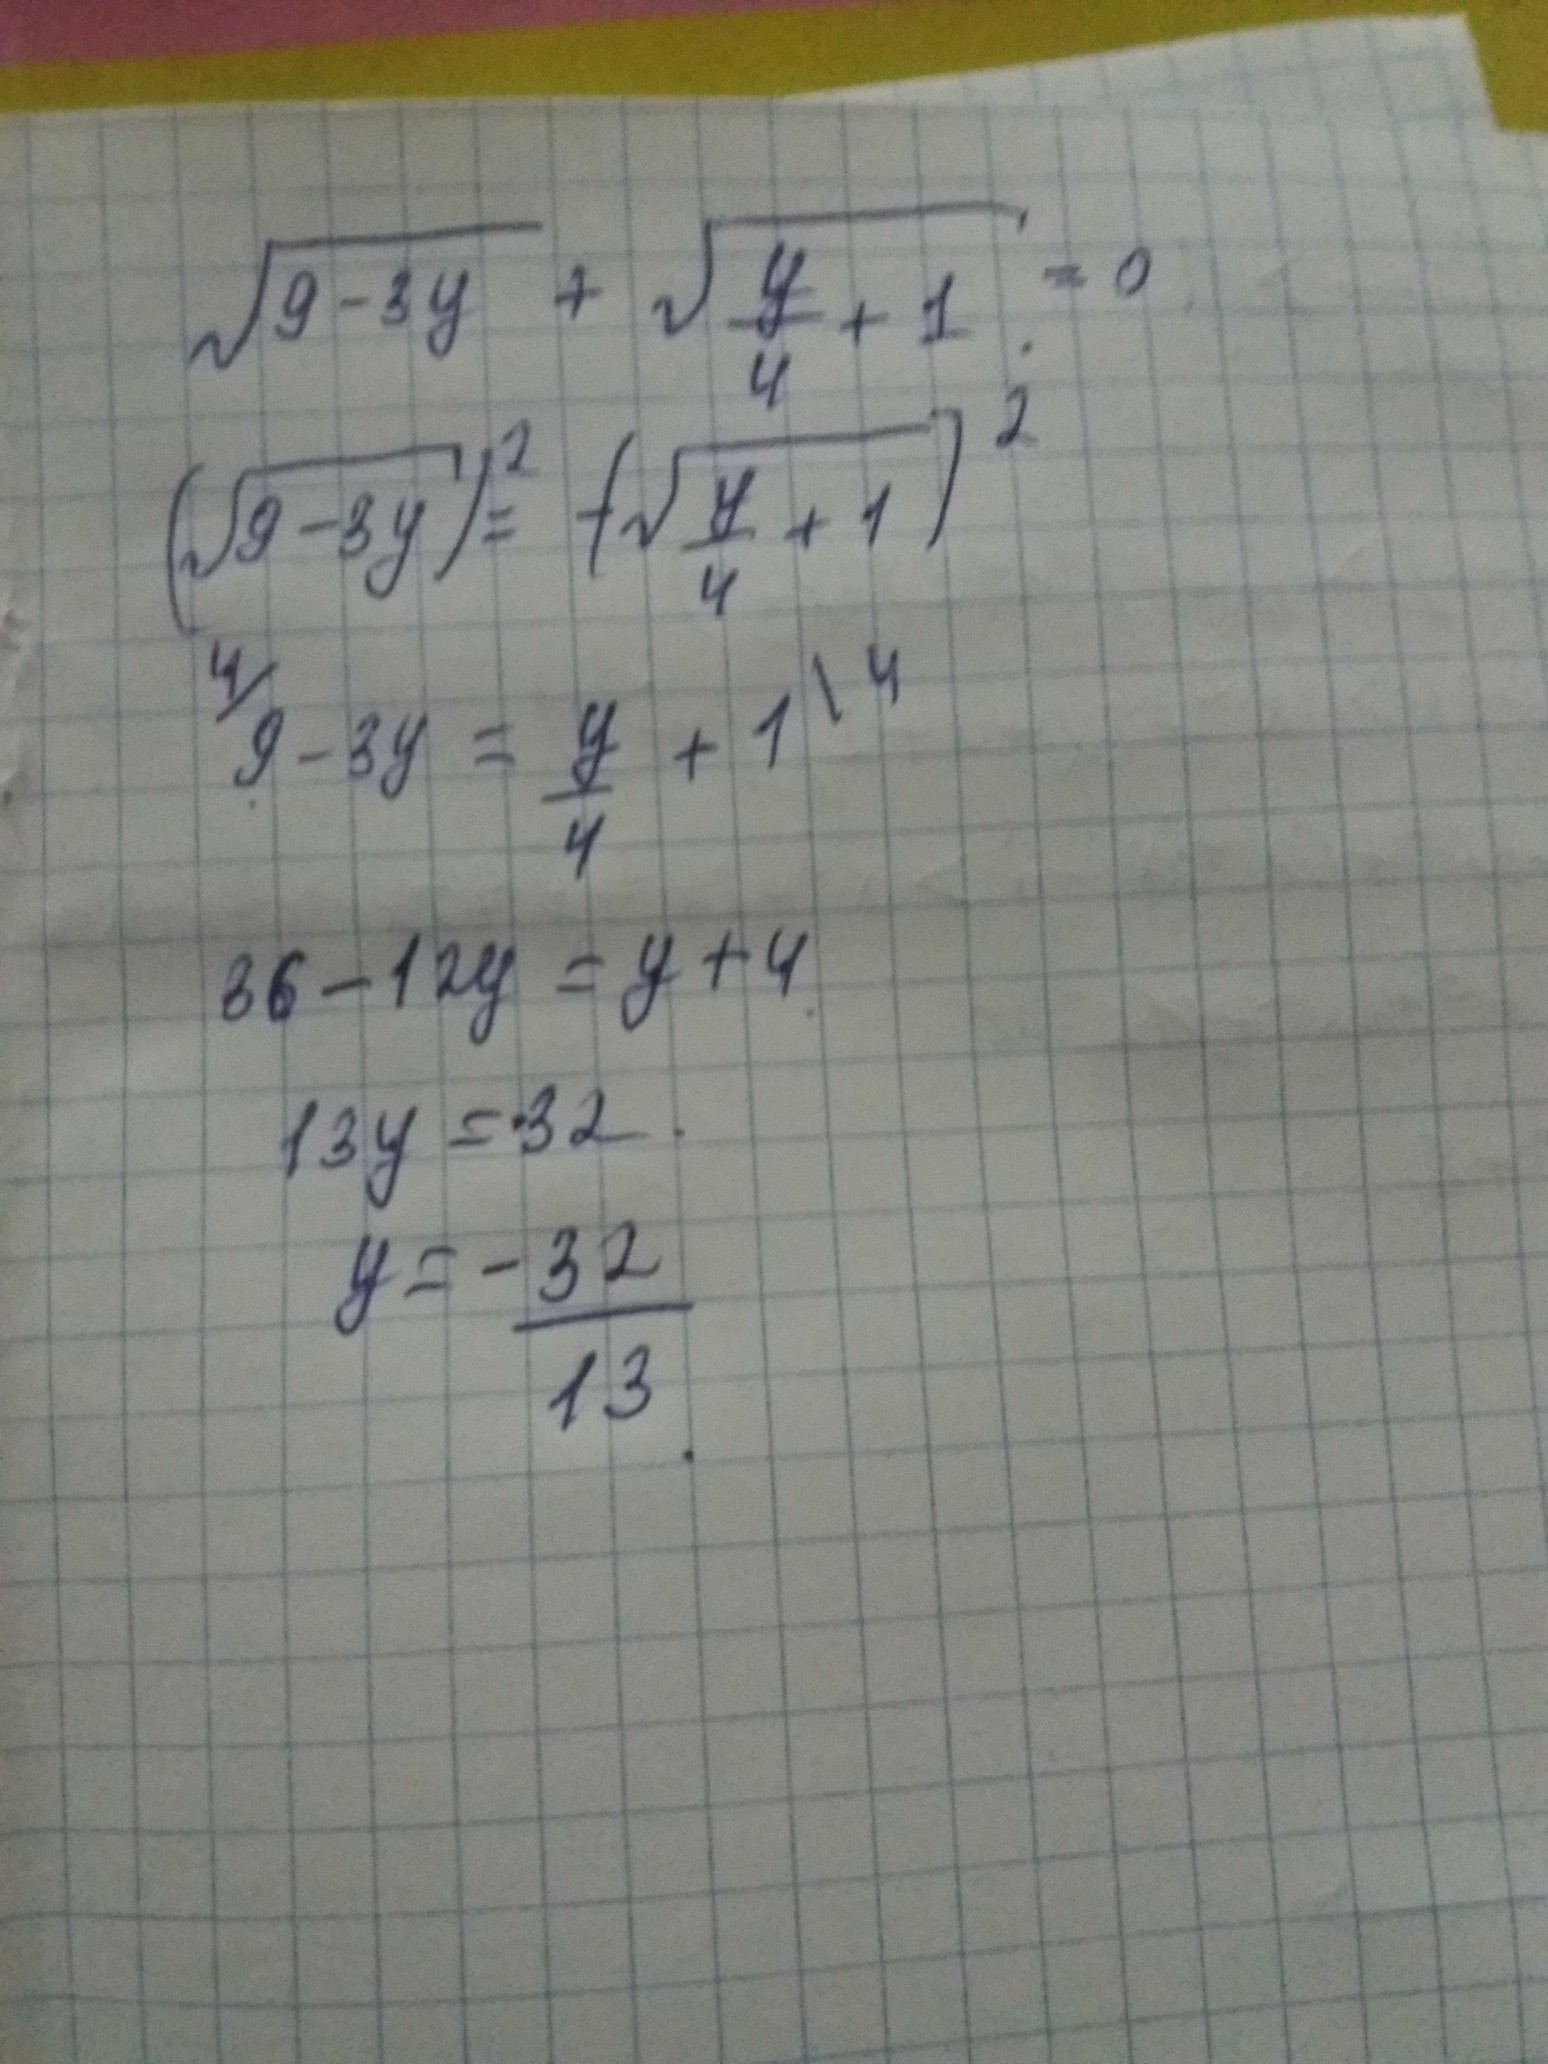 √(9-3y) + √(y/4 + 1) = 0
(√(9-3y))² = -(√(y/4 + 1))²
4/ 9-3y = y/4 + 1 \4
36-12y = y+4
13y = 32
y = -32/13